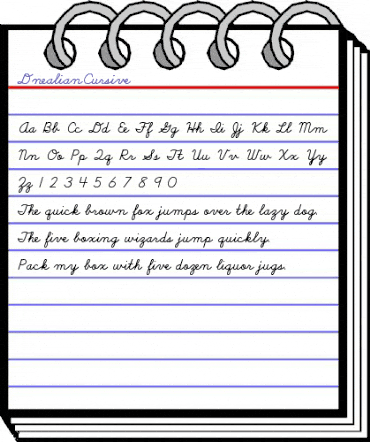 DnealianCursive
Aa Bb Cc Dd Ee Ff Gg Hh Ii Jj Kk Ll Mm
Nn Oo Pp Qq Rr Ss Tt Uu Vv Ww Xx Yy
Zz 1 2 3 4 5 6 7 8 9 0
The quick brown fox jumps over the lazy dog.
The five boxing wizards jump quickly.
Pack my box with five dozen liquor jugs.